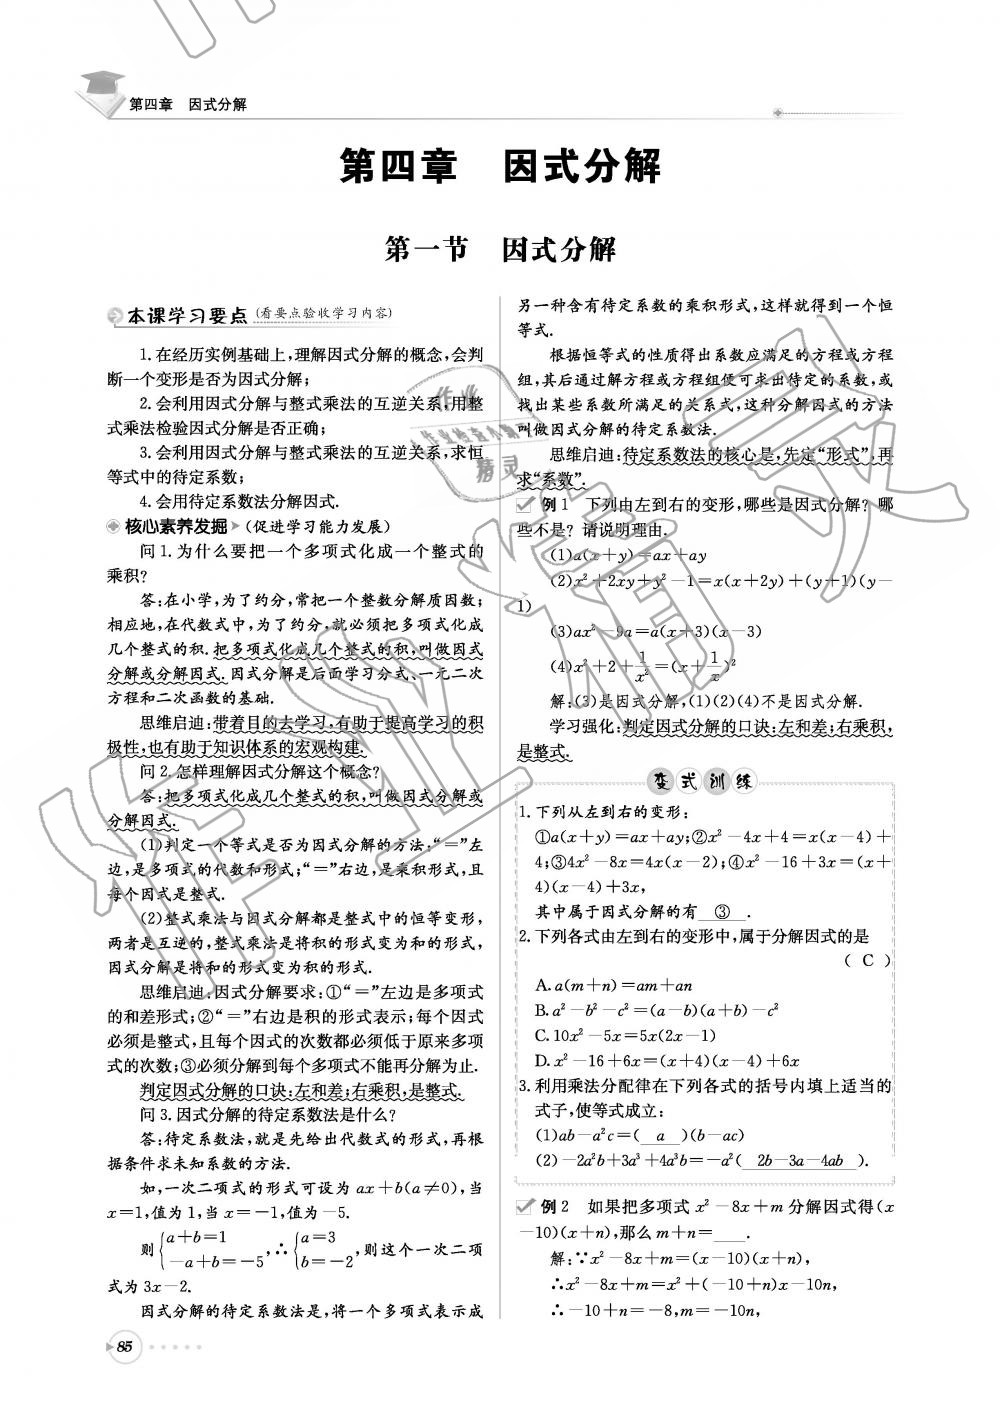 第四章　因式分解
第四章　因式分解
第一节　因式分解
本课学习要点(看要点验收学习内容)
1.在经历实例基础上,理解因式分解的概念,会判
断一个变形是否为因式分解;
2.会利用因式分解与整式乘法的互逆关系,用整
式乘法检验因式分解是否正确;
3.会利用因式分解与整式乘法的互逆关系,求恒
等式中的待定系数;
4.会用待定系数法分解因式.
核心素养发掘(促进学习能力发展)
问1.为什么要把一个多项式化成一个整式的
乘积?
答:在小学,为了约分,常把一个整数分解质因数;
相应地,在代数式中,为了约分,就必须把多项式化成
几个整式的积.把多项式化成几个整式的积,叫做因式
分解或分解因式.因式分解是后面学习分式、一元二次
方程和二次函数的基础.
思维启迪:带着目的去学习,有助于提高学习的积
极性,也有助于知识体系的宏观构建.
问2.怎样理解因式分解这个概念?
答:把多项式化成几个整式的积,叫做因式分解或
分解因式.
(1)判定一个等式是否为因式分解的方法:“=”左
边,是多项式的代数和形式;“=”右边,是乘积形式,且
每个因式是整式.
(2)整式乘法与因式分解都是整式中的恒等变形,
两者是互逆的,整式乘法是将积的形式变为和的形式,
因式分解是将和的形式变为积的形式.
思维启迪:因式分解要求:①“=”左边是多项式
的和差形式;②“=”右边是积的形式表示;每个因式
必须是整式,且每个因式的次数都必须低于原来多项
式的次数;③必须分解到每个多项式不能再分解为止.
判定因式分解的口诀:左和差;右乘积,是整式.
问3.因式分解的待定系数法是什么?
答:待定系数法,就是先给出代数式的形式,再根
据条件求未知系数的方法.
如,一次二项式的形式可设为ax+b(a≠0),当
x=1,值为1,当x=-1,值为-5.
则{a+b=1 -a+b=-5,∴{a=3 b=-2,则这个一次二项
式为3x-2.
因式分解的待定系数法是,将一个多项式表示成
85
另一种含有待定系数的乘积形式,这样就得到一个恒
等式.
根据恒等式的性质得出系数应满足的方程或方程
组,其后通过解方程或方程组便可求出待定的系数,或
找出某些系数所满足的关系式,这种分解因式的方法
叫做因式分解的待定系数法.
思维启迪:待定系数法的核心是,先定“形式”,再
求“系数”.
例1　下列由左到右的变形,哪些是因式分解?哪
些不是?请说明理由.
(1)a(x+y)=ax+ay
(2)x²+2xy+y²-1=x(x+2y)+(y+1)(y-
1)
(3)ax²-9a=a(x+3)(x-3)
(4)x²+2+1/x²=(x+1/x)²
解:(3)是因式分解,(1)(2)(4)不是因式分解.
学习强化:判定因式分解的口诀:左和差;右乘积,
是整式.
变式训练
1.下列从左到右的变形:
①a(x+y)=ax+ay;②x²-4x+4=x(x-4)+
4;③4x²-8x=4x(x-2);④x²-16+3x=(x+
4)(x-4)+3x,
其中属于因式分解的有 ③ .
2.下列各式由左到右的变形中,属于分解因式的是
( C )
A.a(m+n)=am+an
B.a²-b²-c²=(a-b)(a+b)-c²
C.10x²-5x=5x(2x-1)
D.x²-16+6x=(x+4)(x-4)+6x
3.利用乘法分配律在下列各式的括号内填上适当的
式子,使等式成立:
(1)ab-a²c=( a )(b-ac)
(2)-2a²b+3a³+4a³b=-a²( 2b-3a-4ab ).
例2　如果把多项式x²-8x+m分解因式得(x
-10)(x+n),那么m+n=____.
解:∵x²-8x+m=(x-10)(x+n),
∴x²-8x+m=x²+(-10+n)x-10n,
∴-10+n=-8,m=-10n,
作业精灵
作业
作业检查小帮手
精灵